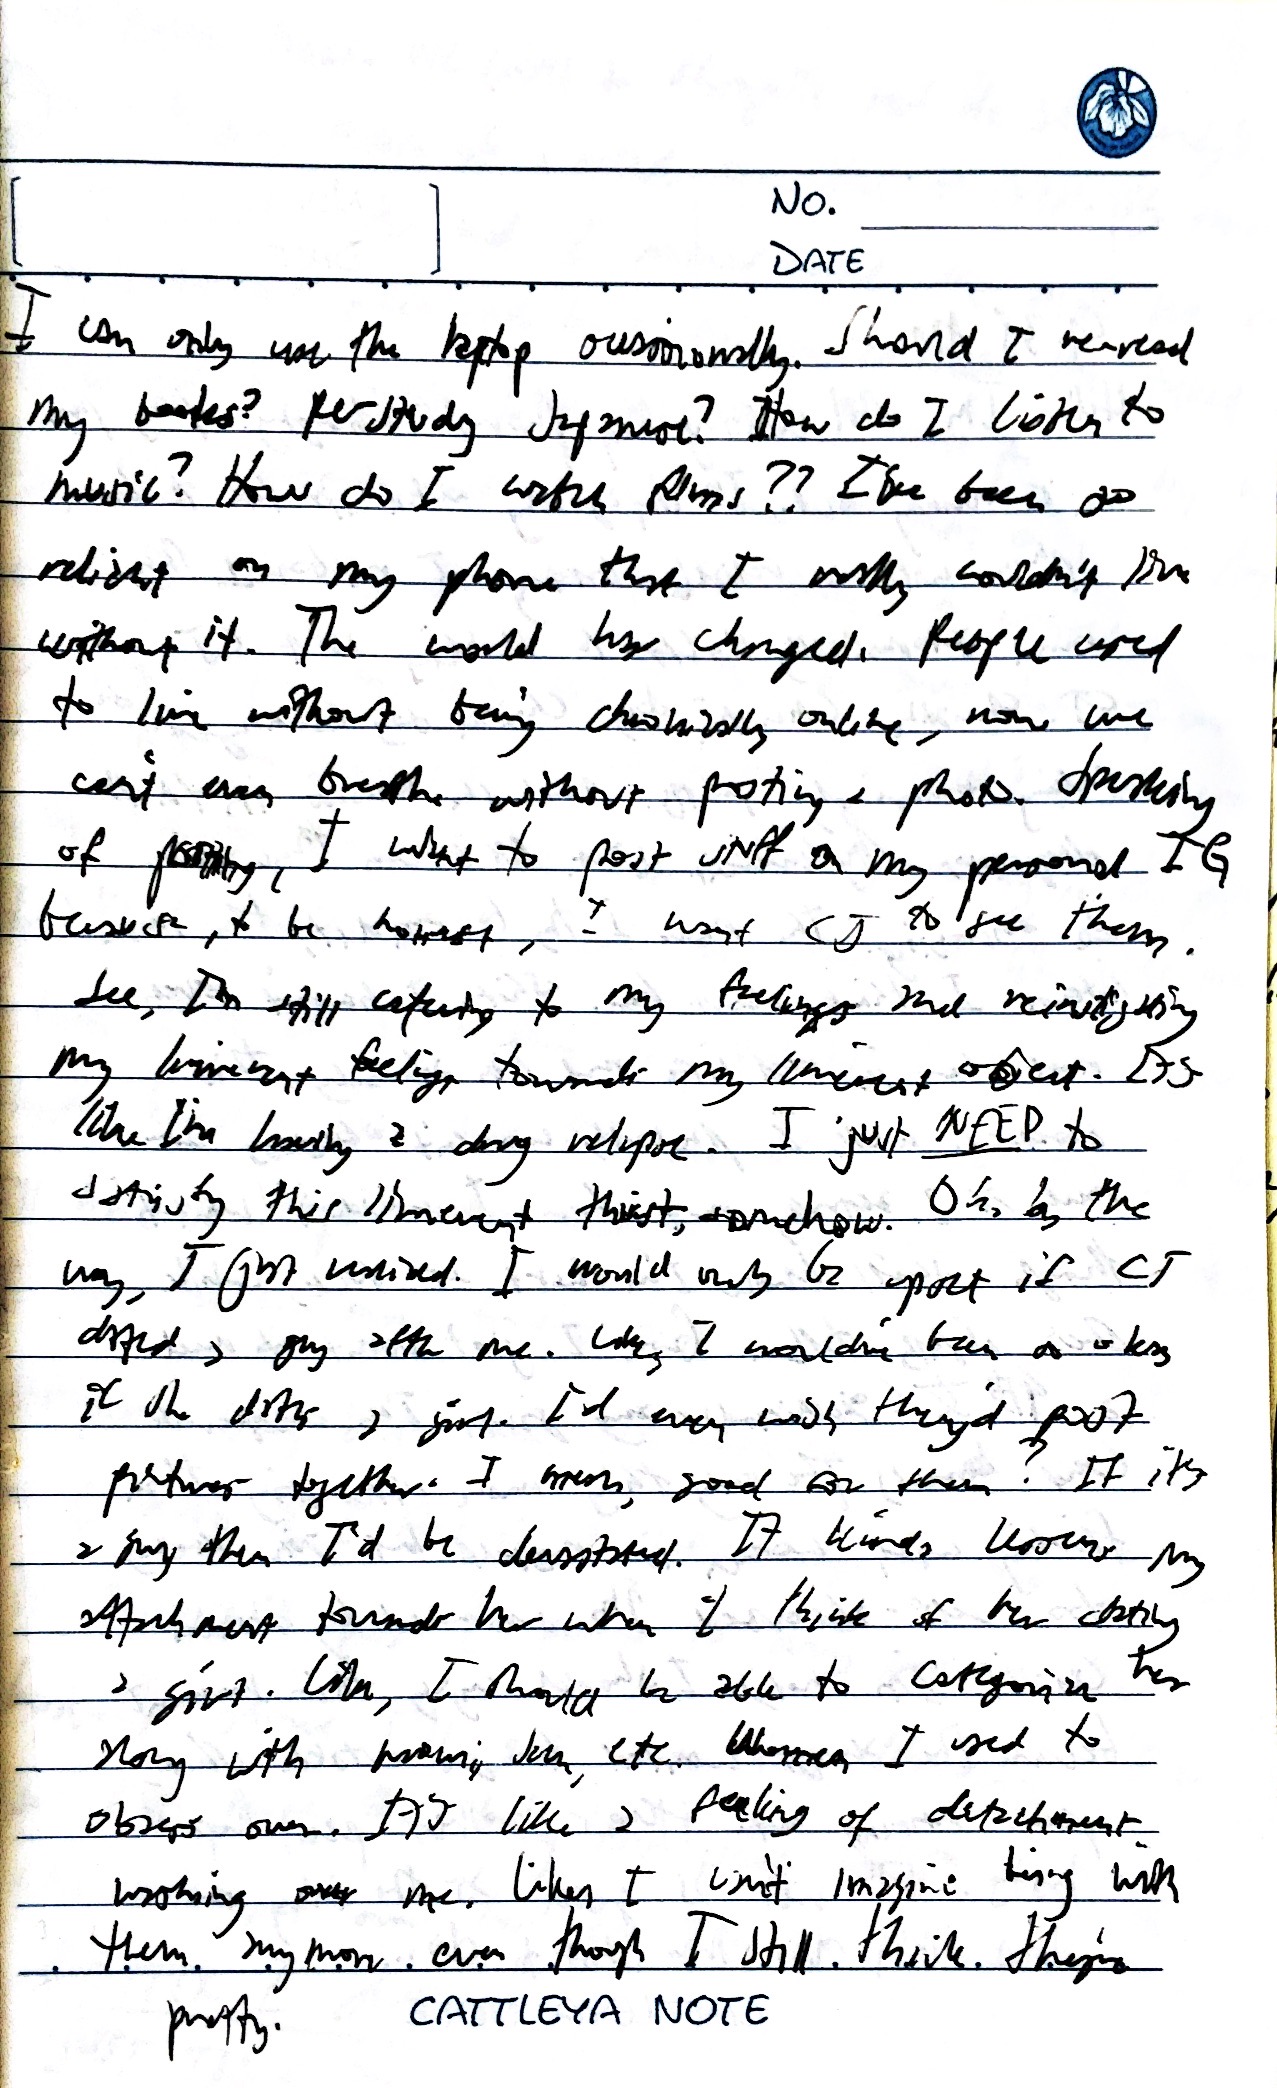 NO.
DATE
I can only use the laptop occasionally. Should I re-read
my books? Re-study Japanese? How do I listen to
music? How do I watch films?? I've been so
reliant on my phone that I really couldn't live
without it. The world has changed. People used
to live without being chronically online, now we
can't even breathe without posting a photo. Speaking
of posting, I want to post stuff on my personal IG
because, to be honest, I want CJ to see them.
See, I'm still catering to my feelings and
my limerent feelings towards my limerent object. It's
like I'm having a drug relapse. I just NEED to
satisfy this limerent thirst, somehow. Oh, by the
way, I just realized. I would only be upset if CJ
dated a guy after me. Like, I would've been so okay
if she dates a girl. I'd even wish they'd post
pictures together. I mean, good for them? If it's
a guy then I'd be devastated. It kinda lessens my
attachment towards her when I think of her dating
a girl. Like, I should be able to categorize her
story with etc. I used to
obsess over. It's like a feeling of detachment
washing over me. Like, I can't imagine being with
them anymore even though I still think they're
pretty.
CATTLEYA NOTE